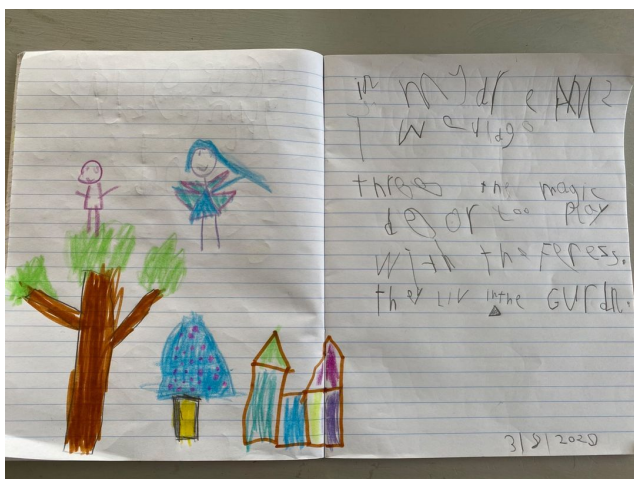 in my dreAMS
I wauldgo
three the magic
dooor too play
with the Feress.
they LIV inthe GUrdn.
3/8/2020